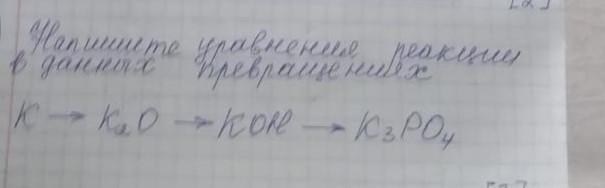 Напишите уравнения реакции
в данных превращениях
K → K₂O → KOH → K₃PO₄